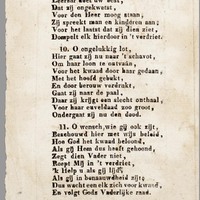 Dat zij ongekwetst,
Voor den Heer moog staan,
Zij spreekt man en kinderen aan;
Voor het laatst dat zij dien ziet,
Dompelt elk hierdoor in 't verdriet.
10. O ongelukkig lot,
Hier gaat zij nu naar 't schavot,
Om haar loon te ontvaân,
Voor het kwaad door haar gedaan;
Met het hoofd gebukt,
En door berouw verdrukt,
Gaat zij naar de paal,
Daar zij krijgt een slecht onthaal,
Voor haar euveldaad zoo groot,
Ondergaat zij nu den dood.
11. O mensch, wie gij ook zijt,
Beschouwd hier met wijs beleid
Hoe God het kwaad beloond,
Als gij Hem dus heeft gehoond,
Zegt dien Vader niet,
Roept Mij in 't verdriet,
'k Help u als gij lijd,
Als gij in benaauwdheid zijt;
Dus wacht een elk zich voor kwaad,
En volgt Gods Vaderlijke raad.